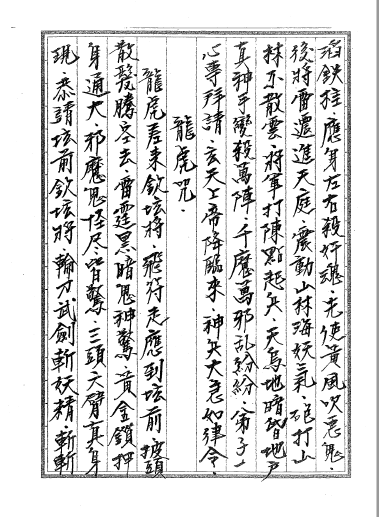 滔鉄柱應身左右殺奸魂·先使黃風吹惡鬼·
後將雷遷進天庭·震動山林海妖氣·砲打山
林不散雲·將軍打陳點起兵·天烏地暗皆地戶
真神千變殺萬陣·千魔萬邪乱紛紛·弟子一
心專拜請·玄天上帝降臨來·神兵火急如律令·
龍虎咒·
龍虎差来欽坛將·飛符走應到坛前·披頭
散髮騰空去·雷霆黑暗鬼神驚·黃金鎖押
身通大·邪魔鬼怪尽皆驚·三頭六臂真身
現·恭請坛前欽坛將·輪刀武劍斬妖精·斬斬